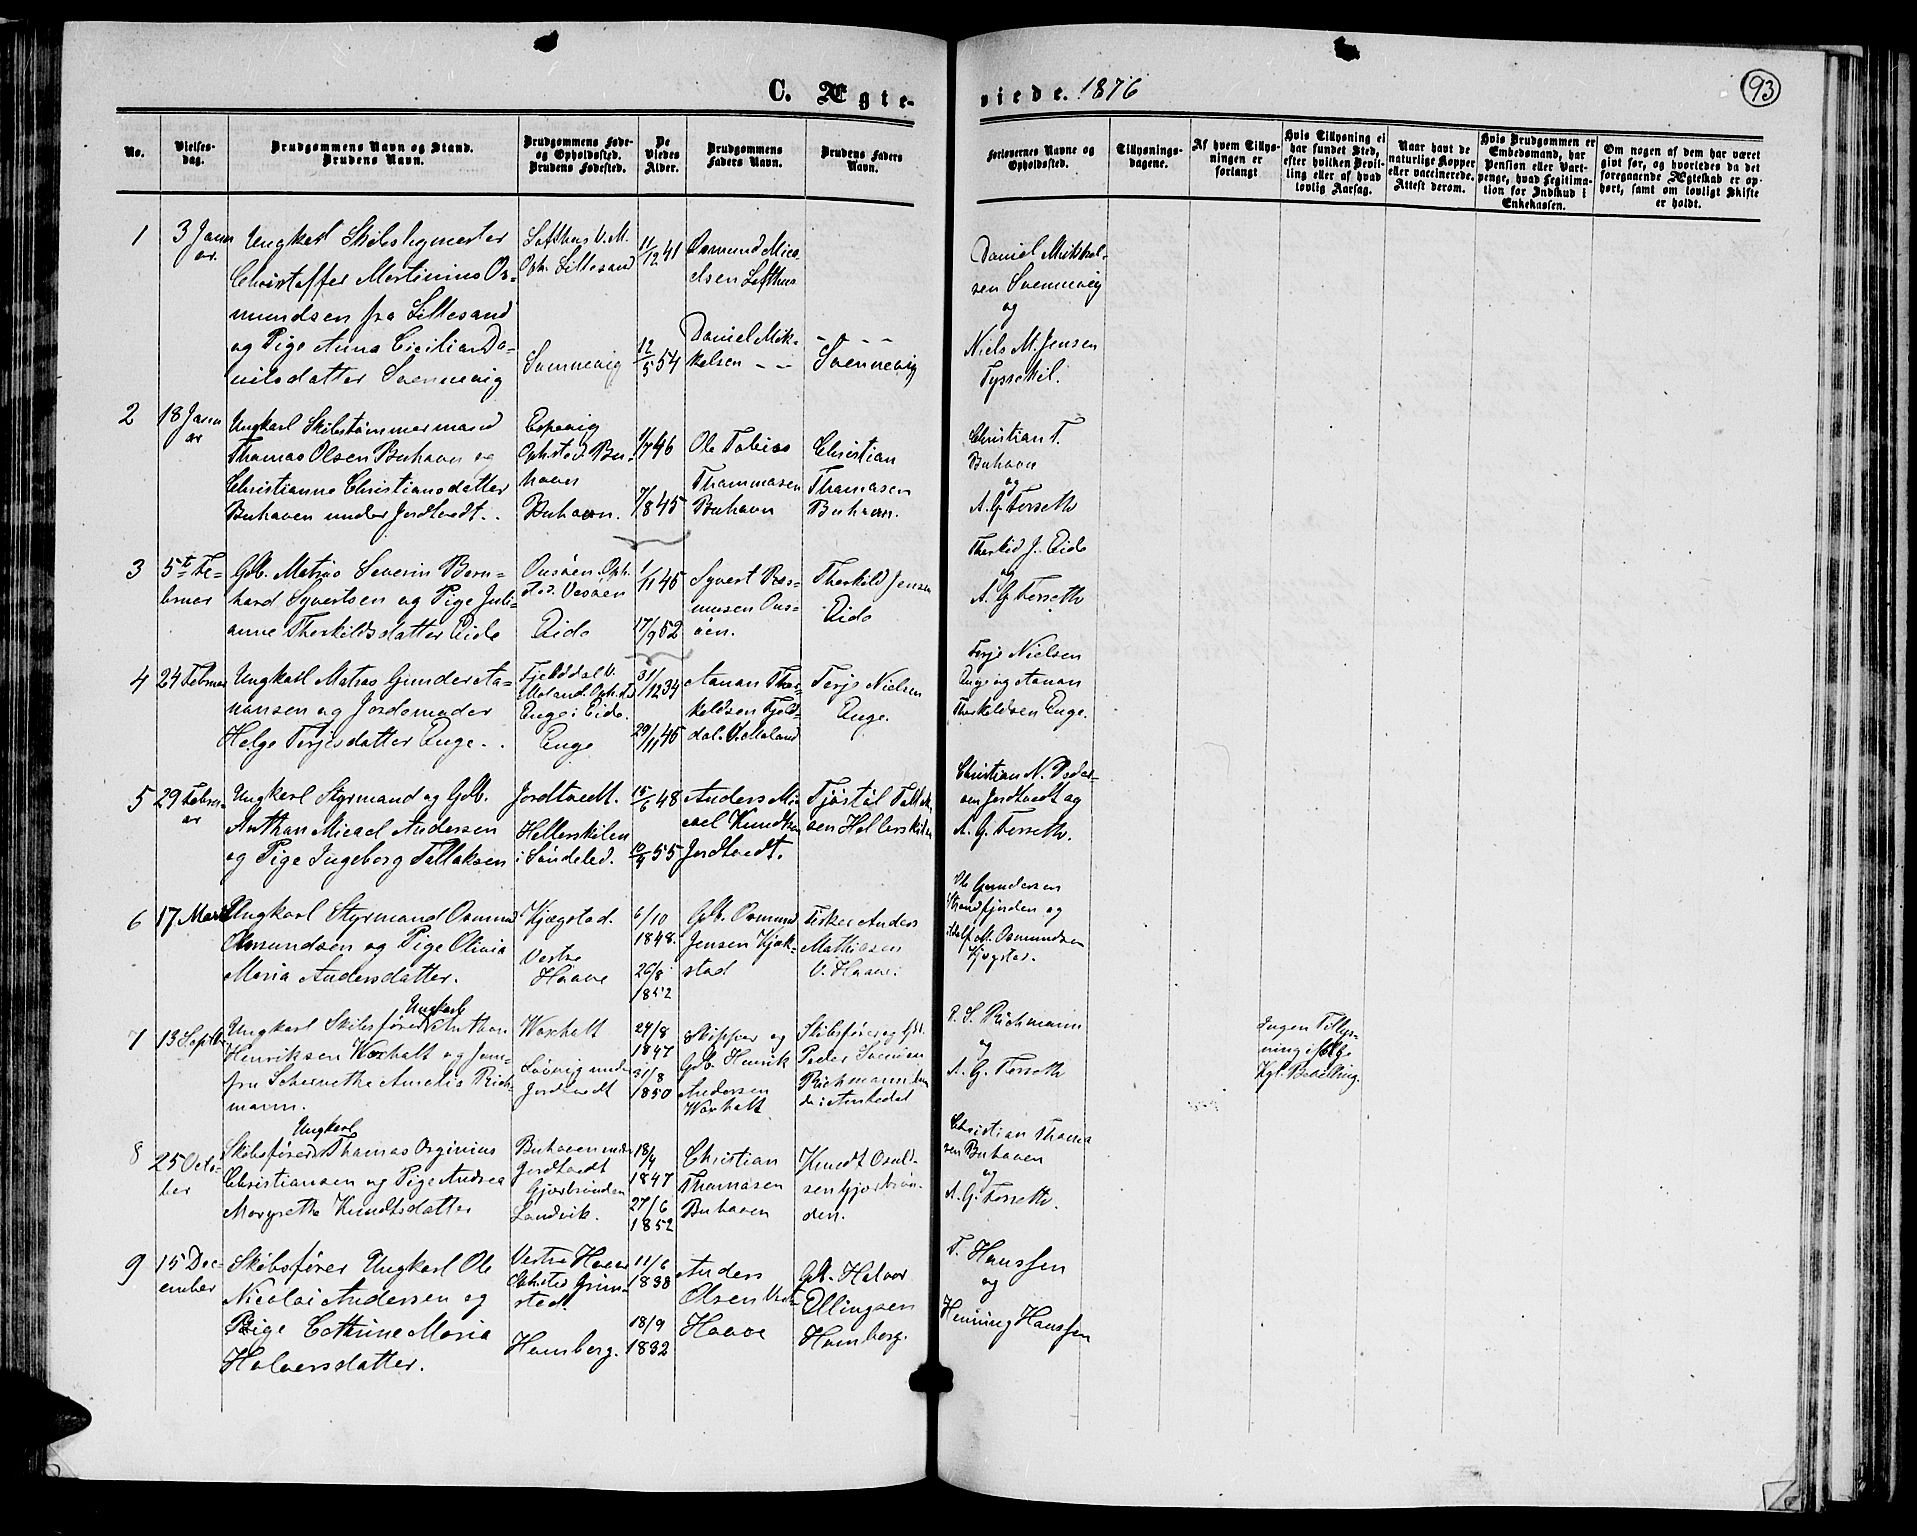 C. Ægte-
viede. 1876
93
No.
Vielses-
dag.
Brudgommens Navn og Stand.
Brudens Navn.
Brudgommens Føde-
og Opholdssted.
Brudens Fødested.
De
Viedes
Alder.
Brudgommens
Faders Navn.
Brudens Faders
Navn.
Forlovernes Navne og
Opholdssted.
Tillysnings-
dagene.
Af hvem Tillys-
ningen er
forlangt
Hvis Tillysning ei
har fundet Sted,
efter hvilken Bevil-
ling eller af hvad
lovlig Aarsag.
Naar havt de
naturlige Kopper
eller vaccinerede.
Attest derom.
Hvis Brudgommen er
Embedsmand, har
Pension eller Vart-
penge, hvad Legitima-
tion for Indskud i
Enkekassen.
Om nogen af dem har været
gift før, og hvorledes da det
foregaaende Ægteskab er op-
hørt, samt om lovligt Skifte
er holdt.
1
3 Janu
ar.
Ungkarl
Christoffer Martinius Os-
mundsen fra Lillesand
og Pige Anna Cicilia Da-
nielsdatter Svennevig
Lofthus V. M.
Oph. Lillesand
Svennevig
11/12 41
12/5 54
Osmund Mica
elsen Lofthus
Daniel Mik-
kelsen - -
- - - -
Svennevig
Daniel Mikkel-
sen Svennevig
og
Niels M. Jensen
2
18 Janu
ar
Ungkarl Skibstømmermand
Thomas Olsen Buhaven og
Christianne Christiansdatter
Buhaven under Jordtvedt.
Espevig
Ophsted Bu-
haven
Buhaven.
1/7 46
7/8 45
Ole Tobias
Thommasen
Buhavn
Christian
Thomasen
Buhavn.
Christian T.
Buhavn
og
A. G. Forseth
3
5te Fe-
bruar
Gdb. Matias Severin Bern-
hard Syvertsen og Pige Juli-
anne Therkildsdatter Eide
Eide
1/11 45
17/9 52
Syvert Ras-
musen Ous-
øen.
Therkild Jensen
Eide
Therkild J. Eide
og
A. G. Forseth
4
24 Februar
Ungkarl Matias Gunder Aa-
nansen og Jordemoder
Helge Terjesdatter Enge.
Fjelddal V.
Moland. Ophsted
Enge i Eide.
Enge
31/12 34
29/11 45
Aanan Ther-
keldsen Fjeld-
dal. V. Moland
Terje Nielsen
Enge.
Terje Nielsen
Enge og Aanan
Therkildsen Enge.
5
29 Febru-
ar
Ungkarl Styrmand og Gdb.
Anthon Micael Andersen
og Pige Ingeborg Tallaksen
Jordtvedt.
Hellerskilen
i Søndeled.
15/6 48
55
Anders Mi-
cael Knudtsen
Jordtvedt.
Tjøstøl Tallak-
sen Hellerskilen
Christian N. Peder-
sen Jordtvedt og
A. G. Forseth.
6
17 Marts
Ungkarl Styrmand Osmund
Osmundsen og Pige Olivia
Maria Andersdatter.
Kjægstad.
Vestre
Haave
6/10
1848.
26/8
1852
Gdb. Osmund
Jensen Kjæk-
stad
Fisker Anders
Mathisen
V. Haave.
Ole Gundersen
Strandfjorden og
M. Osmundsen
7
13 Septbr
Ungkarl Skibsfører Ungkarl Anthon
Henriksen Voxhalt og Jom-
fru Amalia Rich-
mann.
Voxhalt
Søevig und
Jordtvedt
24/8
1847
31/8
1850
Skipper og
Gdb. Henrik
Andersen
Voxhalt
Skibsfører og Gdb.
Peder
Richmann
P. S. Richmann
og
A. G. Forseth
Ingen Tillys-
ning ifølge
Kgl. Bevilling.
8
25 Octo-
ber
Ungkarl
Skibsfører Thomas Orginius
Christiansen og Pige Andrea
Margrethe Knudtsdatter
Buhaven under
Jordtvedt
Gjærbrønden
Landvik.
18/4
1847
27/6
1852
Christian
Thomasen
Buhaven
Knudt Osuld-
sen Gjærbrøn-
den.
Christian Thoma
sen Buhaven
og
A. G. Forseth.
9
15 Dec-
ember
Skibsfører Ungkarl Ole
Nicolai Andersen og
Pige Cathrine Maria
Halvorsdatter.
Vestre Haave
Ophsted Grim-
sted.
Homborg.
11/6
1838
18/9
1832
Anders
Olsen Vestre
Haave
Gdb. Halvor
Ellingsen
Homborg.
T. Hanssen
og
Henning Hanssen